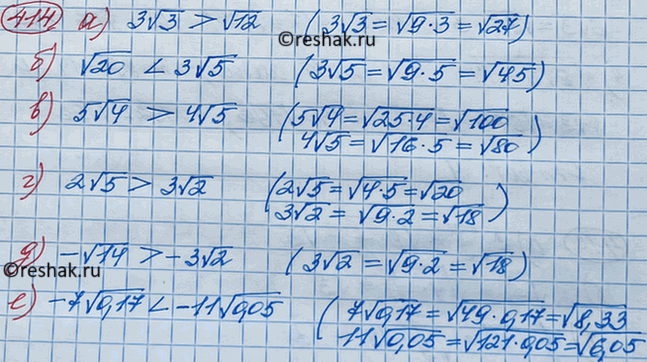 414 а) 3√3 > √12 (3√3 = √9·3 = √27)
©reshak.ru
б) √20 < 3√5 (3√5 = √9·5 = √45)
в) 5√4 > 4√5 (5√4 = √25·4 = √100
4√5 = √16·5 = √80)
г) 2√5 > 3√2 (2√5 = √4·5 = √20
3√2 = √9·2 = √18)
д) -√14 > -3√2 (3√2 = √9·2 = √18)
©reshak.ru
е) -7√0,17 < -11√0,05 (7√0,17 = √49·0,17 = √8,33
11√0,05 = √121·0,05 = √6,05